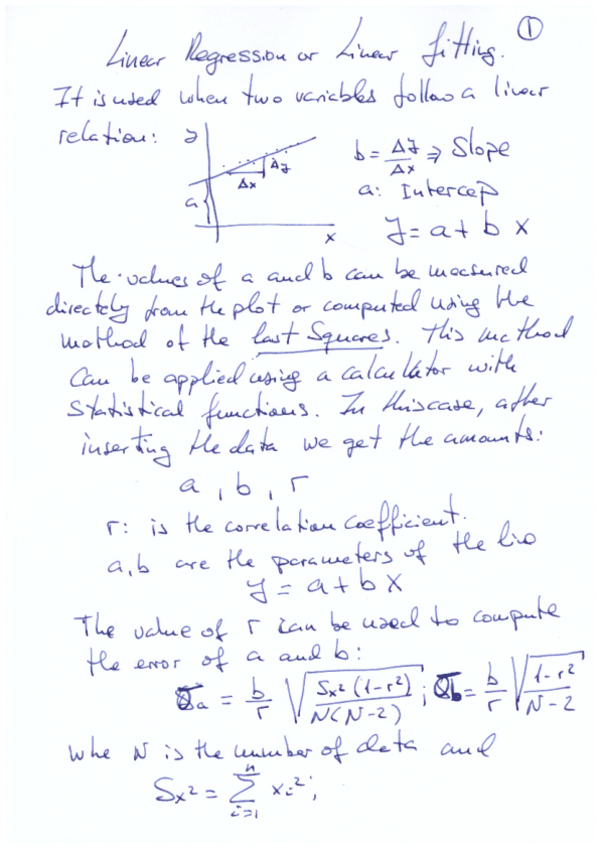 ①
Linear Regression or Linear fitting.
It is used when two variables follow a linear
relation:
y
a
Δx
Δy
x
b = Δy/Δx ⇒ Slope
a: Intercep
y = a + b x
The values of a and b can be measured
directely from the plot or computed using the
method of the last Squares. This method
Can be applied using a calculator with
Statistical functions. In this case, after
inserting the data we get the amounts:
a , b , r
r: is the correlation coefficient.
a, b are the parameters of the line
y = a + b x
The value of r can be used to compute
the error of a and b:
σa = b/r √(Sx² (1-r²) / N(N-2)) ; σb = b/r √((1-r²) / (N-2))
whe N is the number of data and
Sx² = Σ_{i=1}^{n} xi² ;